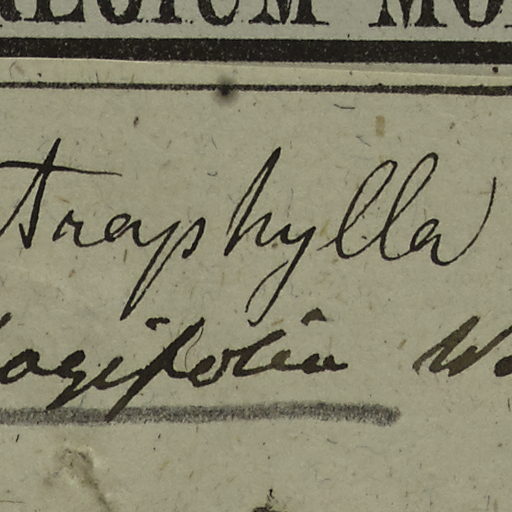 REGIUM MO
traphylla
agifolia W